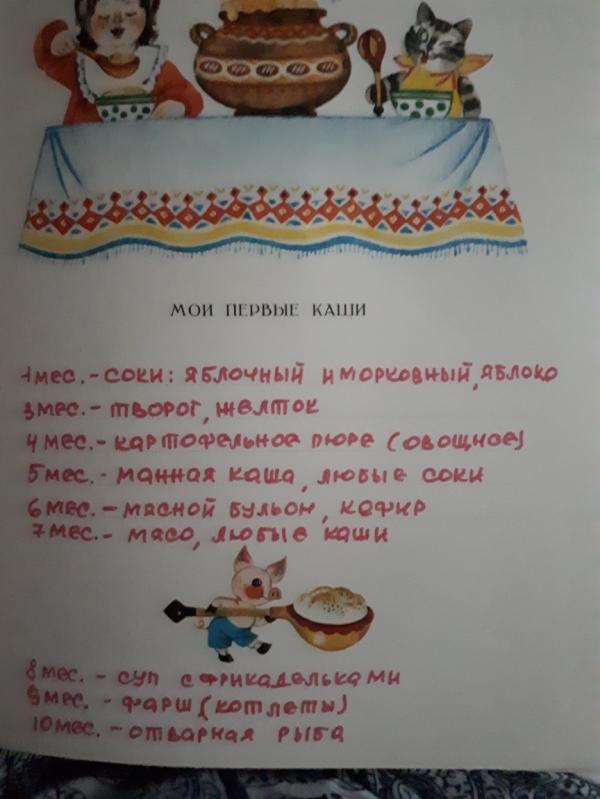 МОИ ПЕРВЫЕ КАШИ
1 мес. - соки: яблочный и морковный, яблоко
3 мес. - творог, желток
4 мес. - картофельное пюре (овощное)
5 мес. - манная каша, любые соки
6 мес. - мясной бульон, кефир
7 мес. - мясо, любые каши
8 мес. - суп с фрикадельками
9 мес. - фарш (котлеты)
10 мес. - отварная рыба